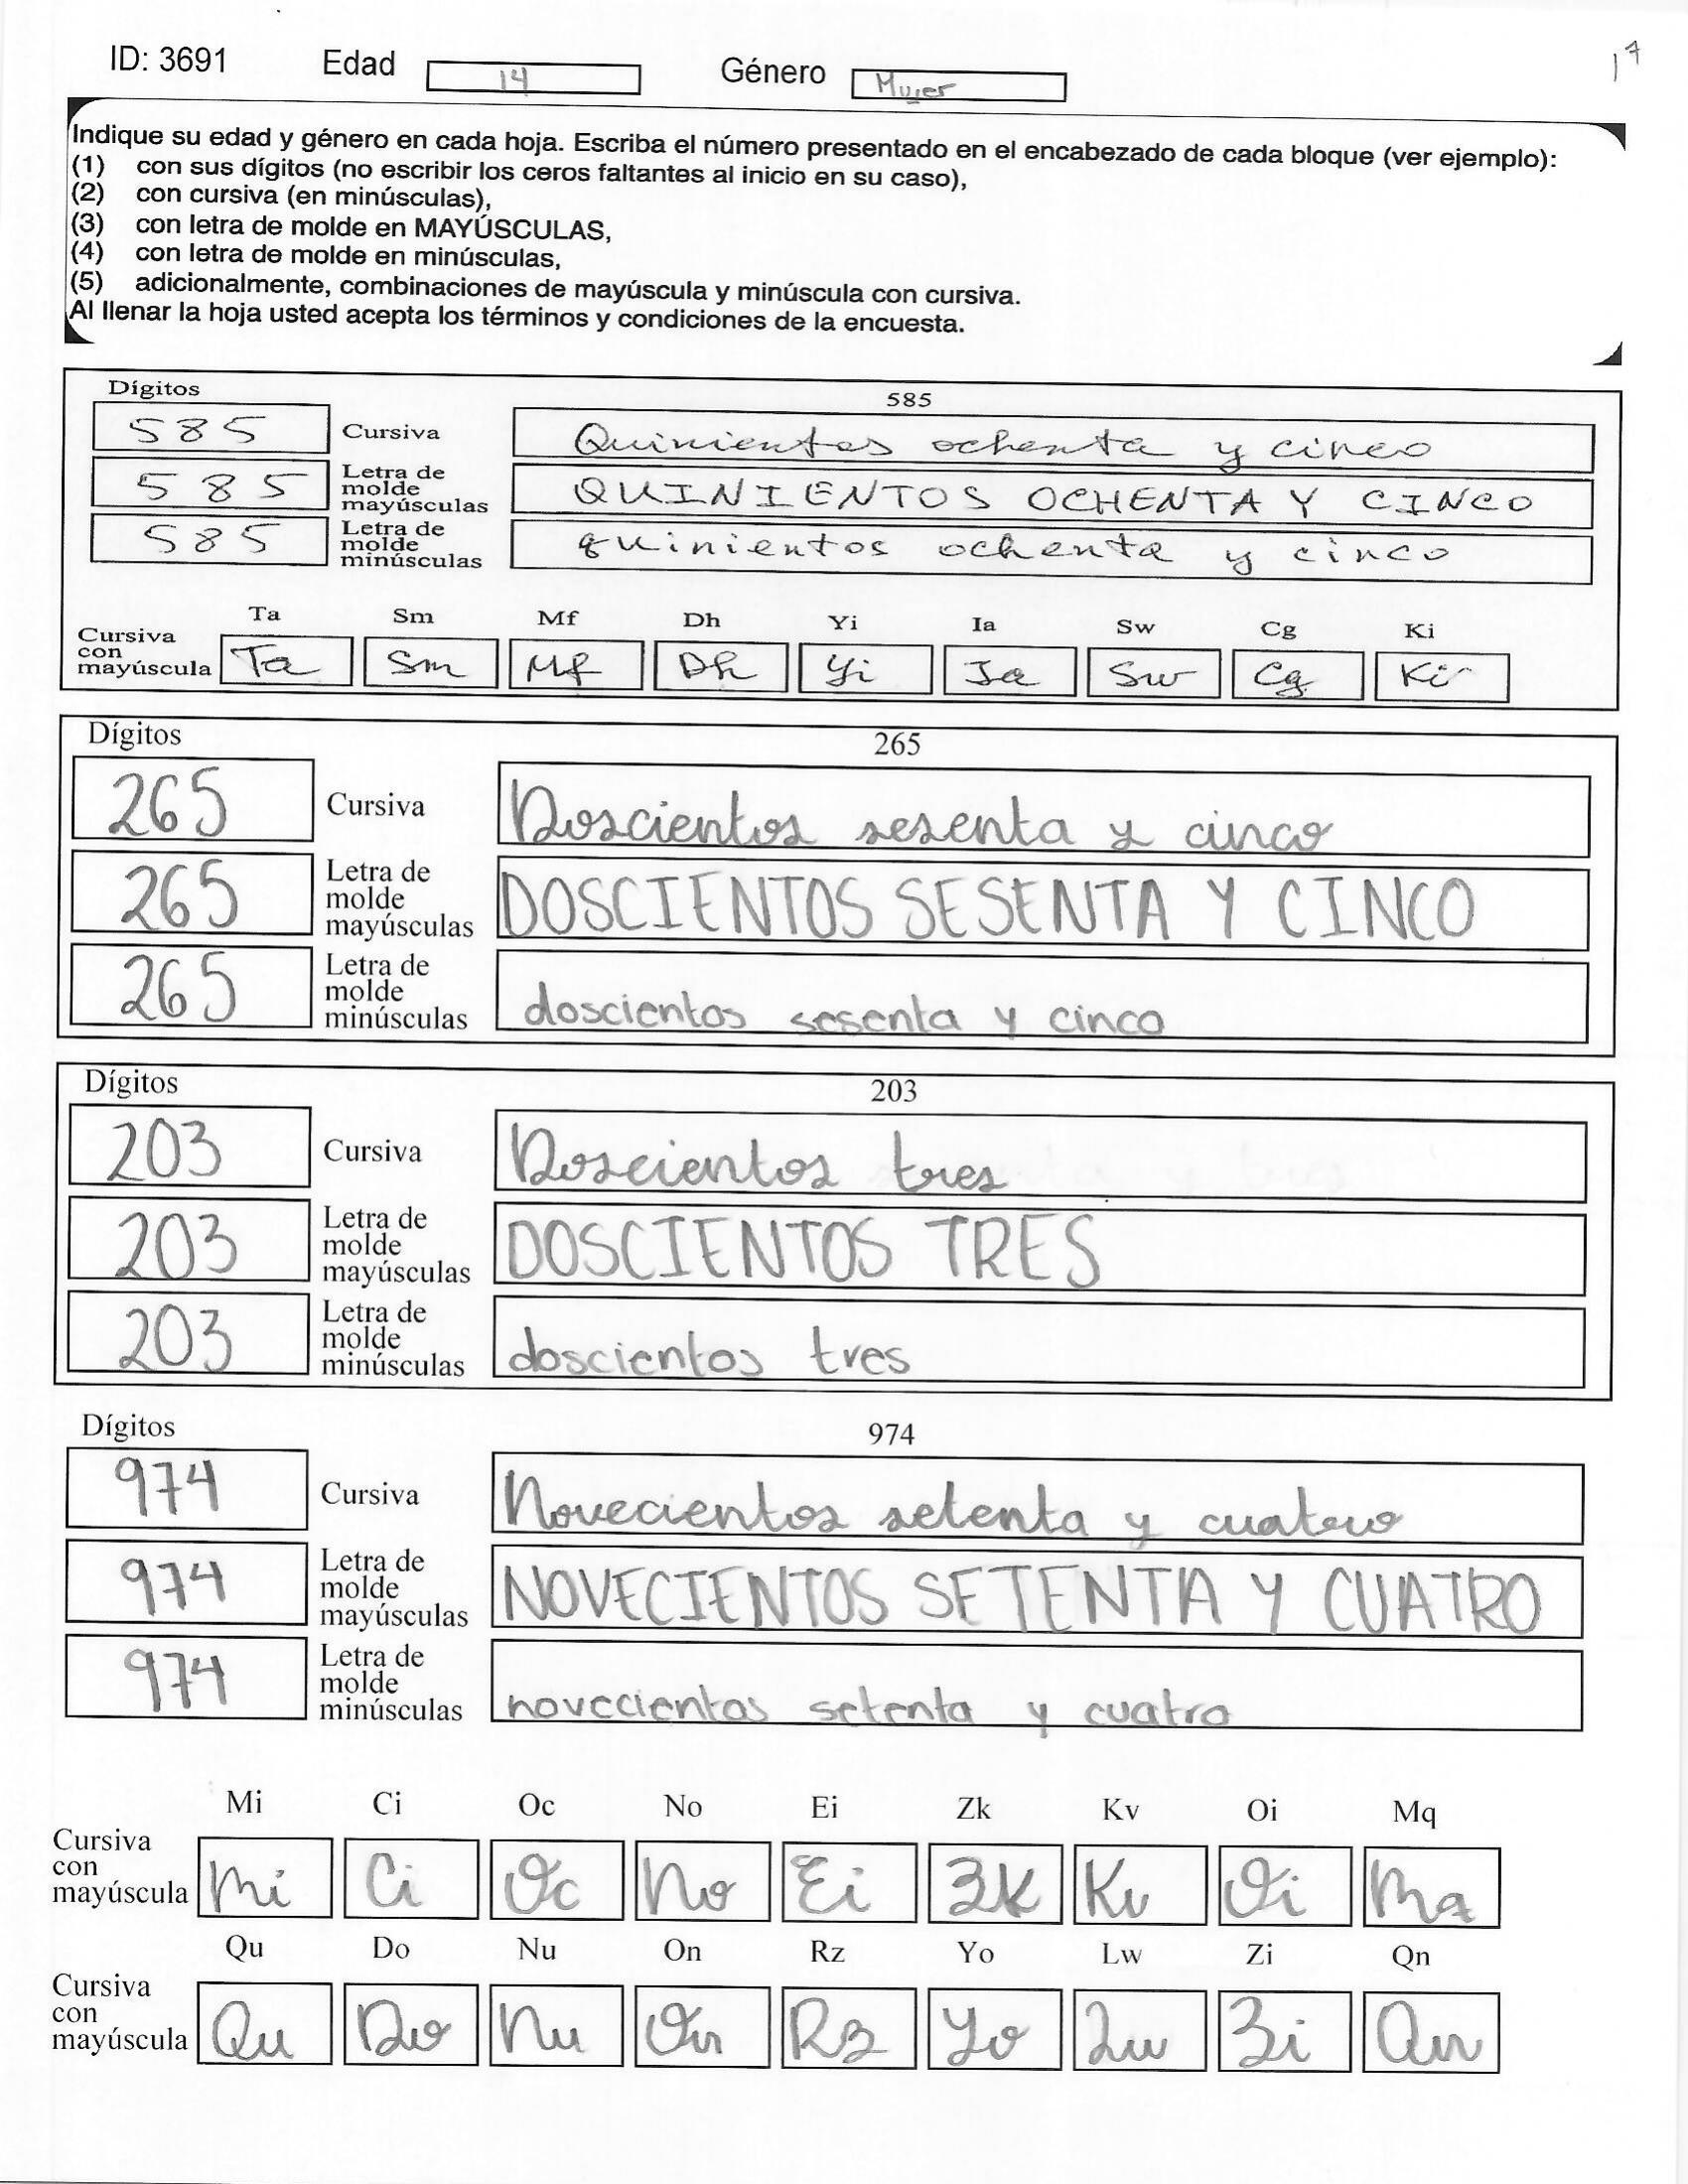 ID: 3691 Edad 14 Género Mujer 17
Indique su edad y género en cada hoja. Escriba el número presentado en el encabezado de cada bloque (ver ejemplo):
(1) con sus dígitos (no escribir los ceros faltantes al inicio en su caso),
(2) con cursiva (en minúsculas),
(3) con letra de molde en MAYÚSCULAS,
(4) con letra de molde en minúsculas,
(5) adicionalmente, combinaciones de mayúscula y minúscula con cursiva.
Al llenar la hoja usted acepta los términos y condiciones de la encuesta.
Dígitos 585
585 Cursiva Quinientos ochenta y cinco
585 Letra de molde mayúsculas QUINIENTOS OCHENTA Y CINCO
585 Letra de molde minúsculas quinientos ochenta y cinco
Ta Sm Mf Dh Yi Ia Sw Cg Ki
Cursiva con mayúscula Ta Sm Mf Dh Yi Ia Sw Cg Ki
Dígitos 265
265 Cursiva Doscientos sesenta y cinco
265 Letra de molde mayúsculas DOSCIENTOS SESENTA Y CINCO
265 Letra de molde minúsculas doscientos sesenta y cinco
Dígitos 203
203 Cursiva Doscientos tres
203 Letra de molde mayúsculas DOSCIENTOS TRES
203 Letra de molde minúsculas doscientos tres
Dígitos 974
974 Cursiva Novecientos setenta y cuatro
974 Letra de molde mayúsculas NOVECIENTOS SETENTA Y CUATRO
974 Letra de molde minúsculas novecientos setenta y cuatro
Mi Ci Oc No Ei Zk Kv Oi Mq
Cursiva con mayúscula Mi Ci Oc No Ei Zk Kv Oi Mq
Qu Do Nu On Rz Yo Lw Zi Qn
Cursiva con mayúscula Qu Do Nu On Rz Yo Lw Zi Qn